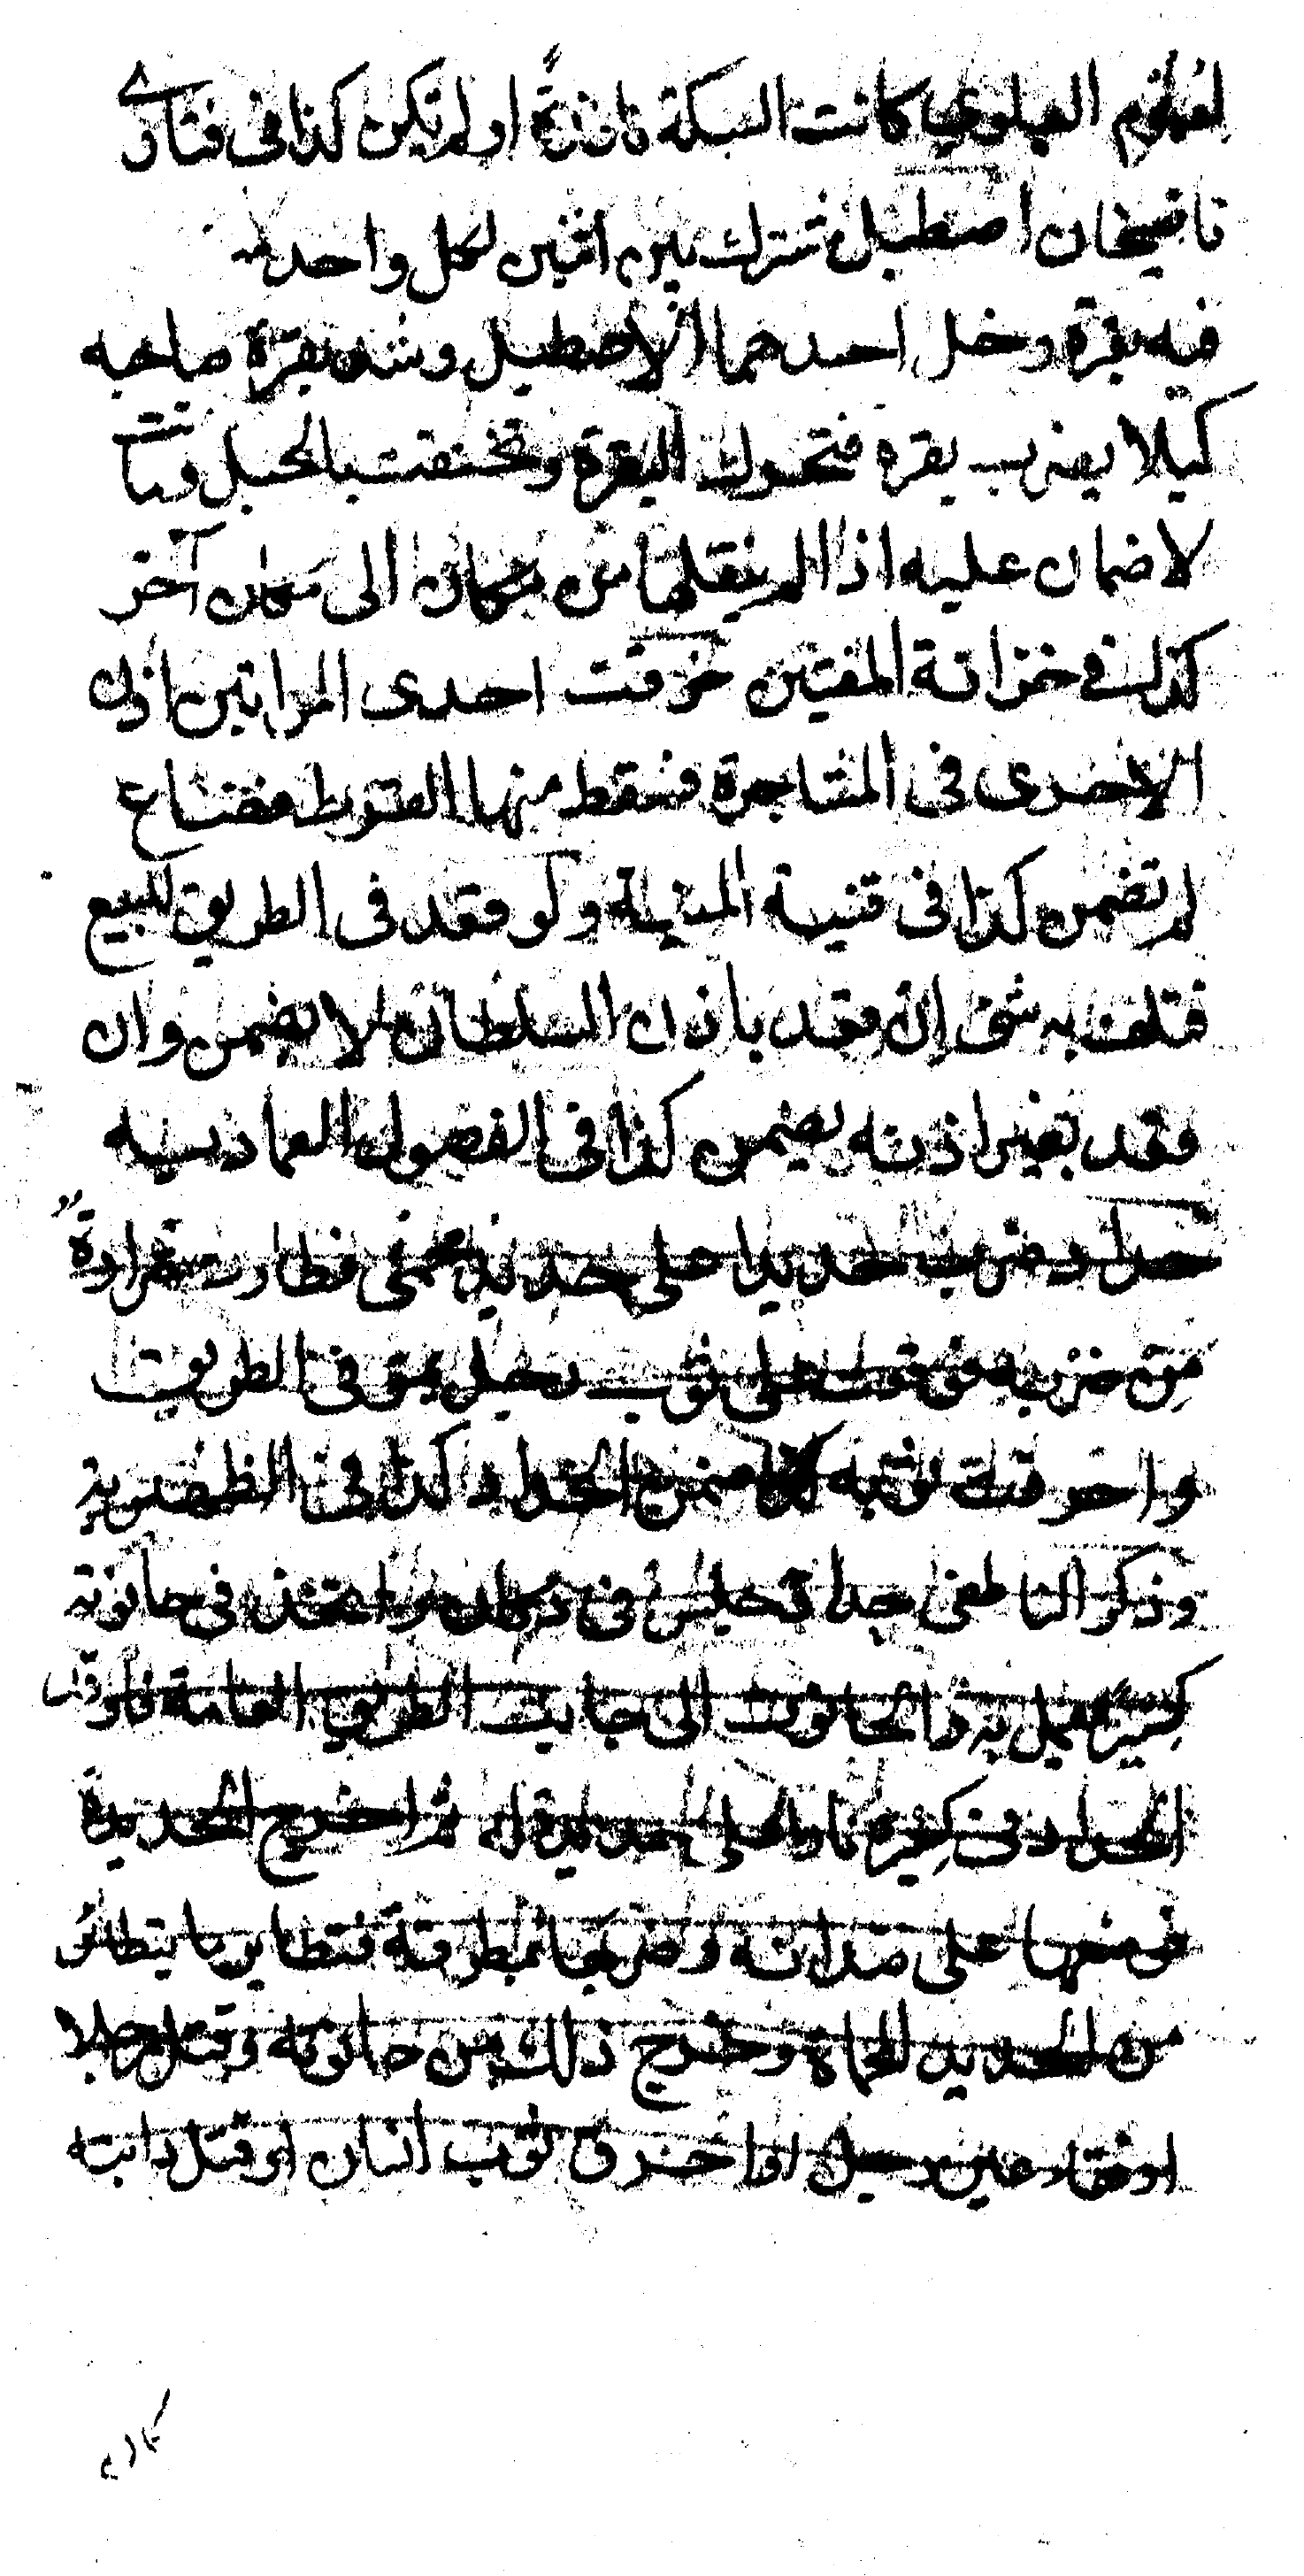 كانت السكة نافذة او لم تكن كذا في فتاوى
قاضيخان اصطبل مشترك بين اثنين لكل واحد
فيه بقرة دخل احدهما الاصطبل وشد بقرة صاحبه
كيلا يضرب بقره فتحركت البقرة وتخنقت بالحبل وماتت
لا ضمان عليه اذا لم ينقلها من مكان الى مكان آخر
كذلك في خزانة المفتين خرقت احدى المراتين اذن
الاخرى في المشاجرة فسقط منها القرط فضاع
لم تضمن كذا في قنية المنية ولو قعد في الطريق للبيع
فتلف به شئ إن قعد باذن السلطان لا يضمن وان
قعد بغير اذنه يضمن كذا في الفصول العمادية
حداد ضرب حديدا على حديد محمى فطارت شرارة
من ضربه فوقعت على ثوب رجل يمر في الطريق
واحرقت ثوبه ضمن الحداد كذا في الظهيرية
وذكر الناطفي حداد جلس في دكان واتخذ في حانوته
كيرا يعمل به والحانوت الى جانب الطريق العامة فاوقد
الحداد في كيره نارا على حديد له ثم اخرج الحديدة
فوضعها على وضربها بمطرقة فتطاير ما يتطاير
من الحديد المحماة وخرج ذلك من حانوته وقتل رجلا
او فقأ عين رجل او احرق ثوب انسان او قتل دابته